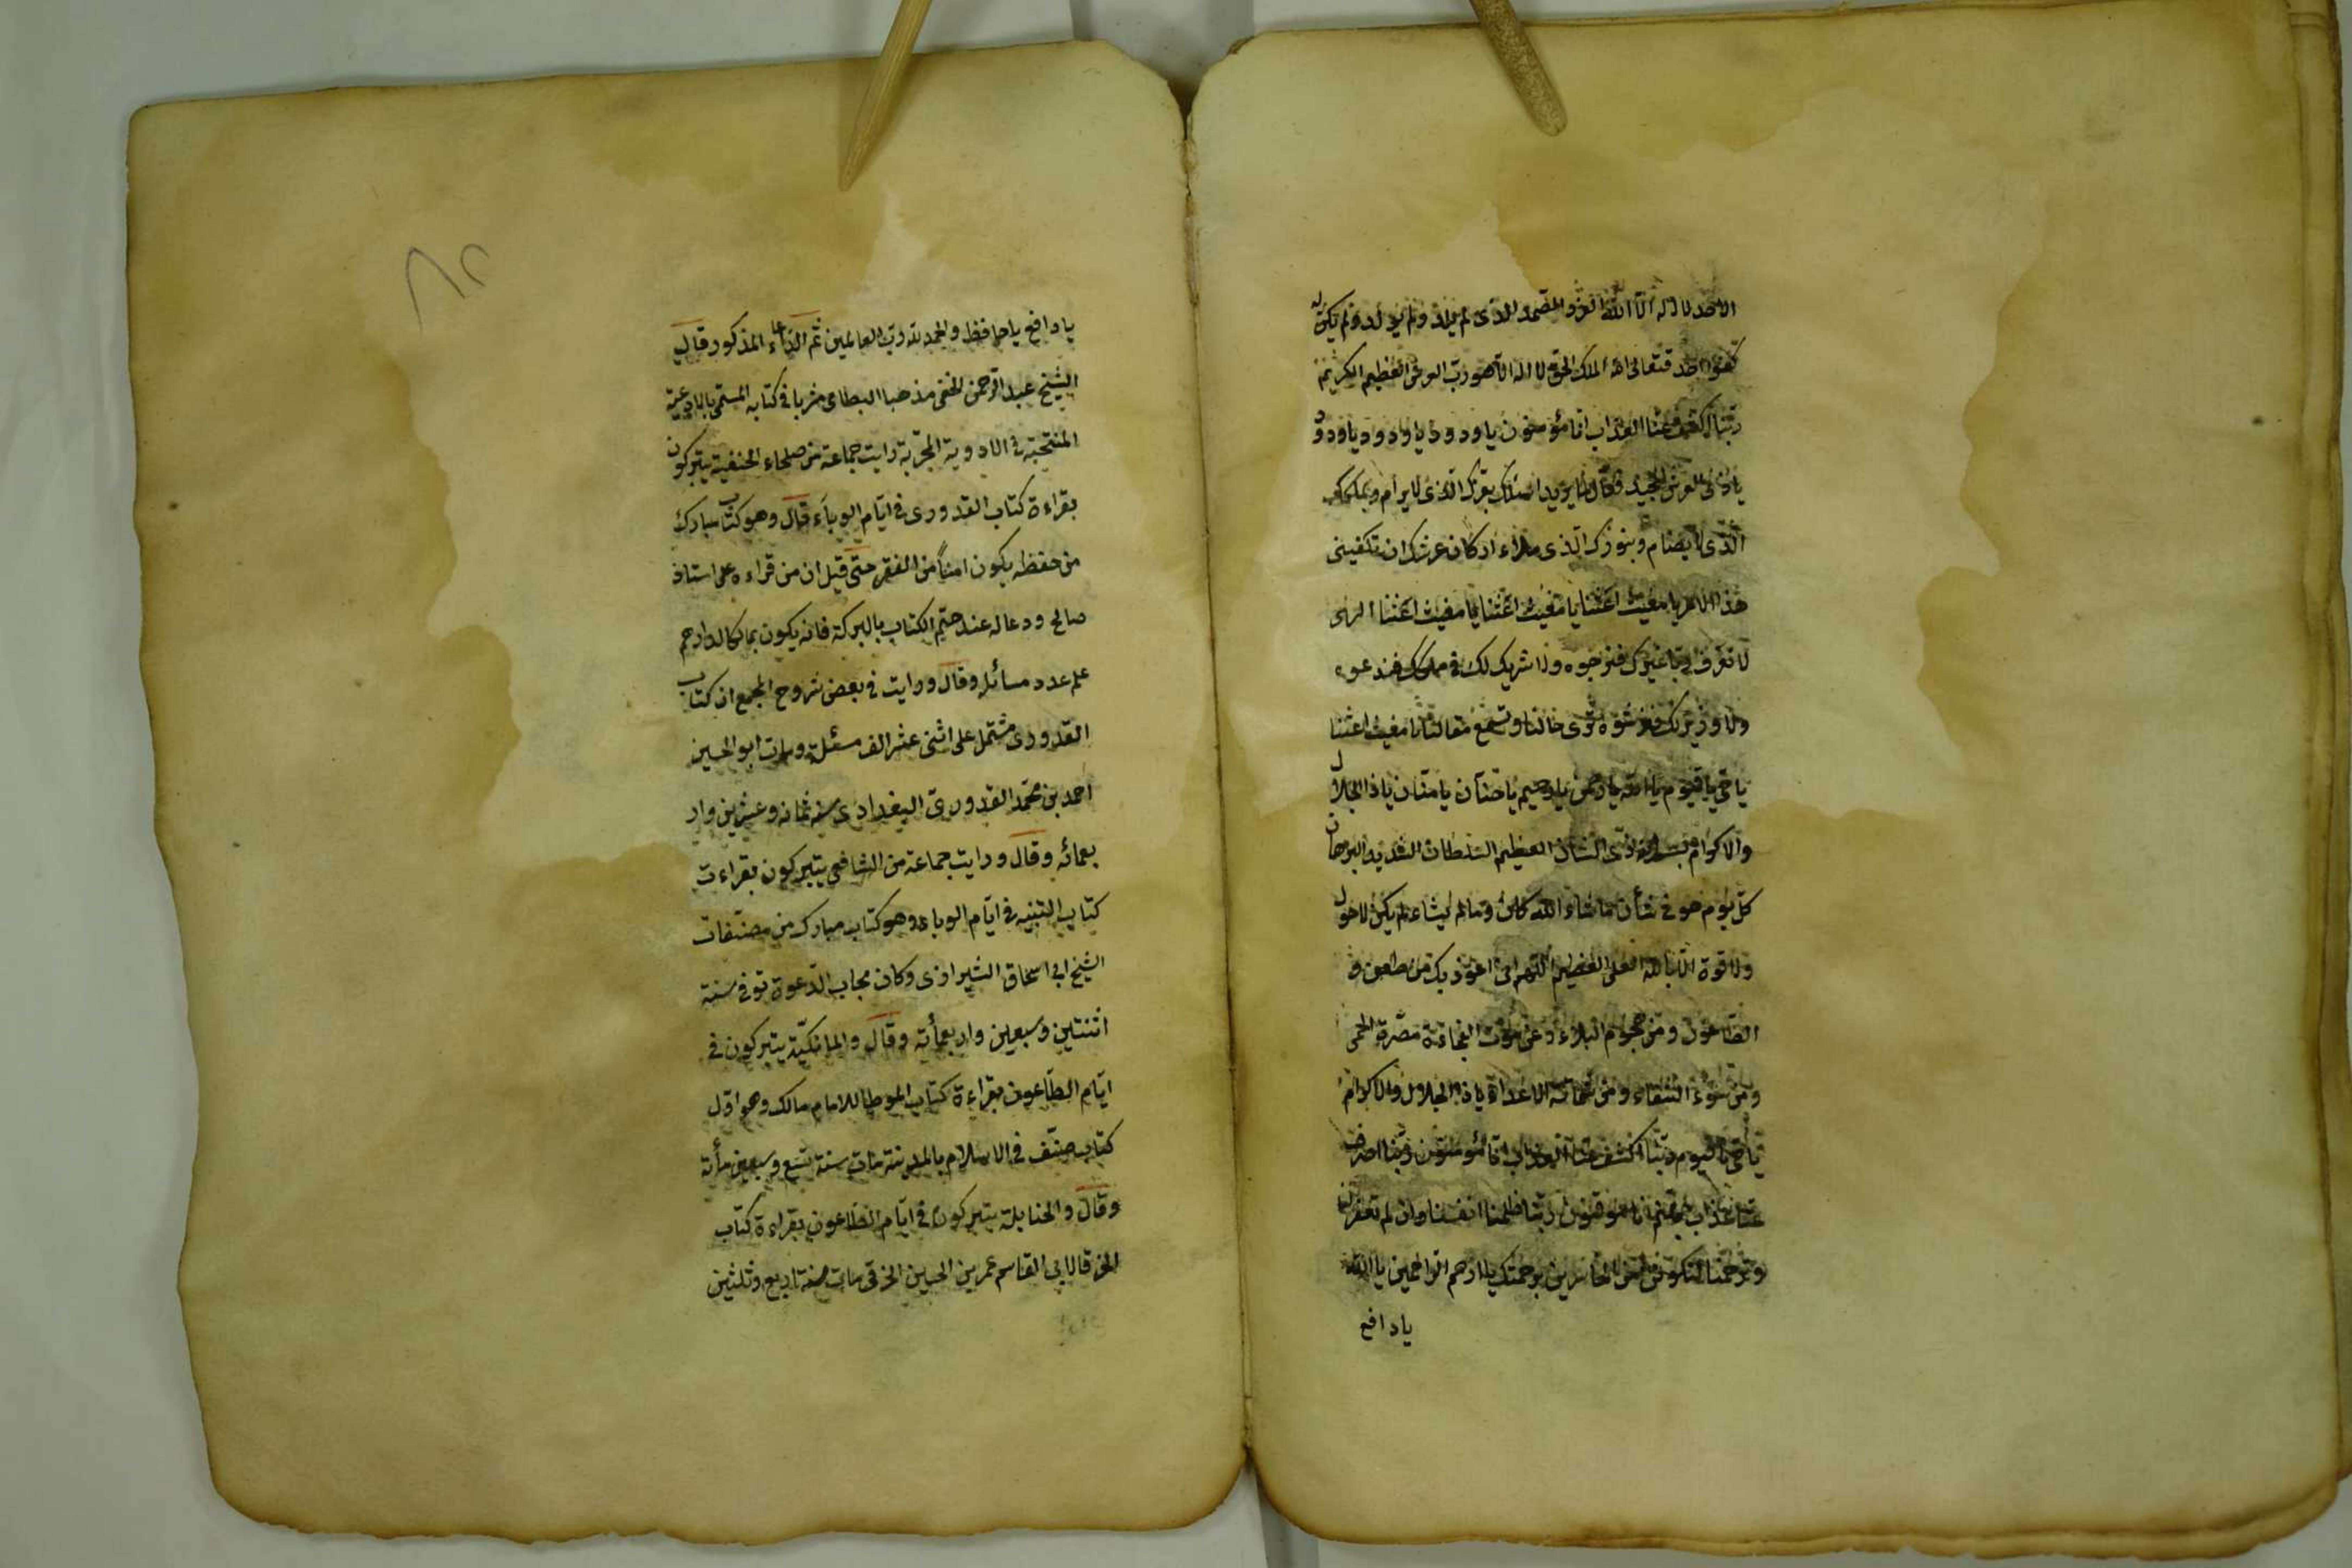 الاحد لا اله الا الله الفرد الصمد الذى لم يلد ولم يولد ولم يكن له
كفوا احد فتعالى الله الملك الحق لا اله الا هو رب العرش العظيم الكريم
ربنا اكشف عنا العذاب انا مؤمنون يا ودود يا ودود يا ودود
يا ذى العرش المجيد فعال لما يريد اسئلك بعزك الذى لا يرام وبملكك
الذى لا يضام وبنورك الذى ملاء اركان عرشك ان تكفينى
هذا الامر يا مغيث اغثنا يا مغيث اغثنا يا مغيث اغثنا الهى
لا نعرف ربا غيرك فنرجوه ولا شريك لك فى ملكك فندعوه
ولا وزير لك فنرشوه ترى حالنا وتسمع مقالتنا يا مغيث اغثنا
يا حى يا قيوم يا الله يا رحمن يا رحيم يا حنان يا منان يا ذا الجلال
والاكرام بسم الله ذى الشان العظيم السلطان الشديد البرهان
كل يوم هو فى شأن ما شاء الله كان وما لم يشاء لم يكن لا حول
ولا قوة الا بالله العلى العظيم اللهم انى اعوذ بك من طعن و
الطاعون ومن هجوم البلاء وعن موت الفجاءة مضرة الحمى
ومن سوء القضاء ومن شماتة الاعداء يا ذا الجلال والاكرام
يا حى يا قيوم ربنا اكشف عنا العذاب انا مؤمنون ربنا اصرف
عنا عذاب جهنم انا موقنون ربنا ظلمنا انفسنا وان لم تغفر لنا
وترحمنا لنكونن من الخاسرين برحمتك يا ارحم الراحمين يا الله
يا دافع
يا دافع يا حافظ والحمد لله رب العالمين ثم الدعاء المذكور قال
الشيخ عبد الرحمن الحنفى مذهبا البطامى مشربا فى كتابه المسمى بالادعية
المنتخبة فى الادوية المجربة رايت جماعة من صلحاء الحنفية يتبركون
بقراءة كتاب القدورى فى ايام الوباء قال وهو كتاب مبارك
من حفظه يكون امنا من الفقر حتى قيل ان من قراءه على استاذ
صالح ودعا له عند ختم الكتاب بالبركة فانه يكون مالكا لدراهم
على عدد مسائله وقال ورايت فى بعض شروح المجمع ان كتاب
القدورى مشتمل على اثنى عشر الف مسئلة ومات ابو الحسين
احمد بن محمد القدورى البغدادى سنه ثمانه وعشرين وار
بعمائه وقال ورايت جماعة من الشافعى يتبركون بقراءت
كتاب التنبيه فى ايام الوباء وهو كتاب مبارك من مصنفات
الشيخ ابى اسحاق الشيرازى وكان مجاب الدعوة توفى سنة
اثنتين وسبعين واربعمأته وقال والمالكية يتبركون فى
ايام الطاعون بقراءة كتاب الموطا للامام مالك وهو اول
كتاب صنف فى الاسلام بالمدينة مات سنة تسع وسبعين مأته
وقال والحنابلة يتبركون فى ايام الطاعون بقراءة كتاب
الخرقى لابى القاسم عمر بن الحسين الخرقى مات سنة اربع وثلثين